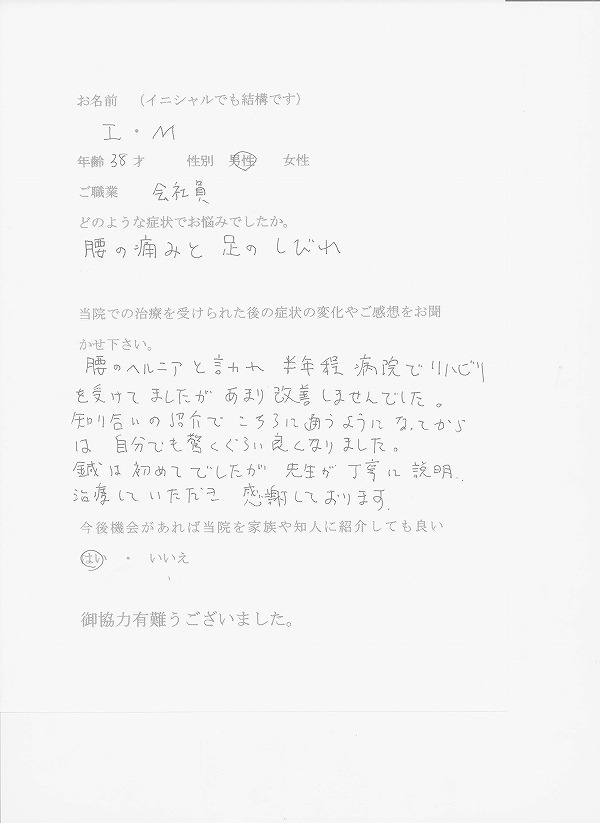 お名前　（イニシャルでも結構です）
I・M
年齢 38 才　性別　男性　女性
ご職業　会社員
どのような症状でお悩みでしたか。
腰の痛みと 足の しびれ
当院での治療を受けられた後の症状の変化やご感想をお聞
かせ下さい。
腰のヘルニアと言われ 半年程 病院でリハビリ
を受けてましたが あまり改善しませんでした。
知り合いの紹介で こちらに通うように なってから
は 自分でも驚くぐらい良くなりました。
鍼は初めてでしたが 先生が丁寧に 説明、
治療していただき 感謝しております。
今後機会があれば当院を家族や知人に紹介しても良い
はい　・　いいえ
御協力有難うございました。